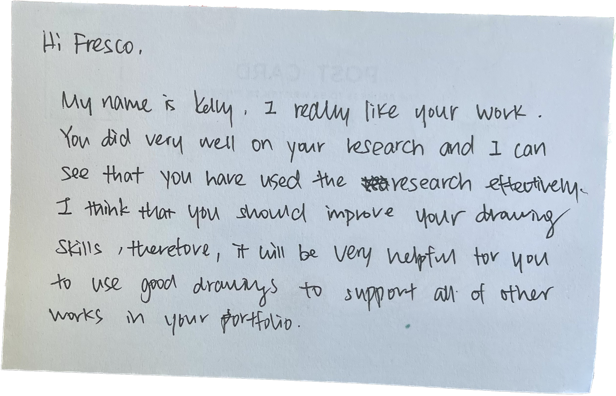 Hi Fresco,
My name is Kelly, I really like your work.
You did very well on your research and I can
see that you have used the research effectively.
I think that you should improve your drawing
skills, therefore, it will be very helpful for you
to use good drawings to support all of other
works in your portfolio.
POST CARD